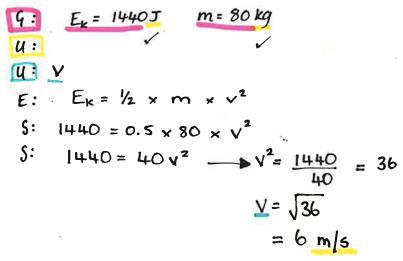 G: Eₖ = 1440J m = 80 kg
U: ✓ ✓
U: V
E: Eₖ = ½ × m × v²
S: 1440 = 0.5 × 80 × v²
S: 1440 = 40v² → v² = 1440/40 = 36
V = √36
= 6 m/s